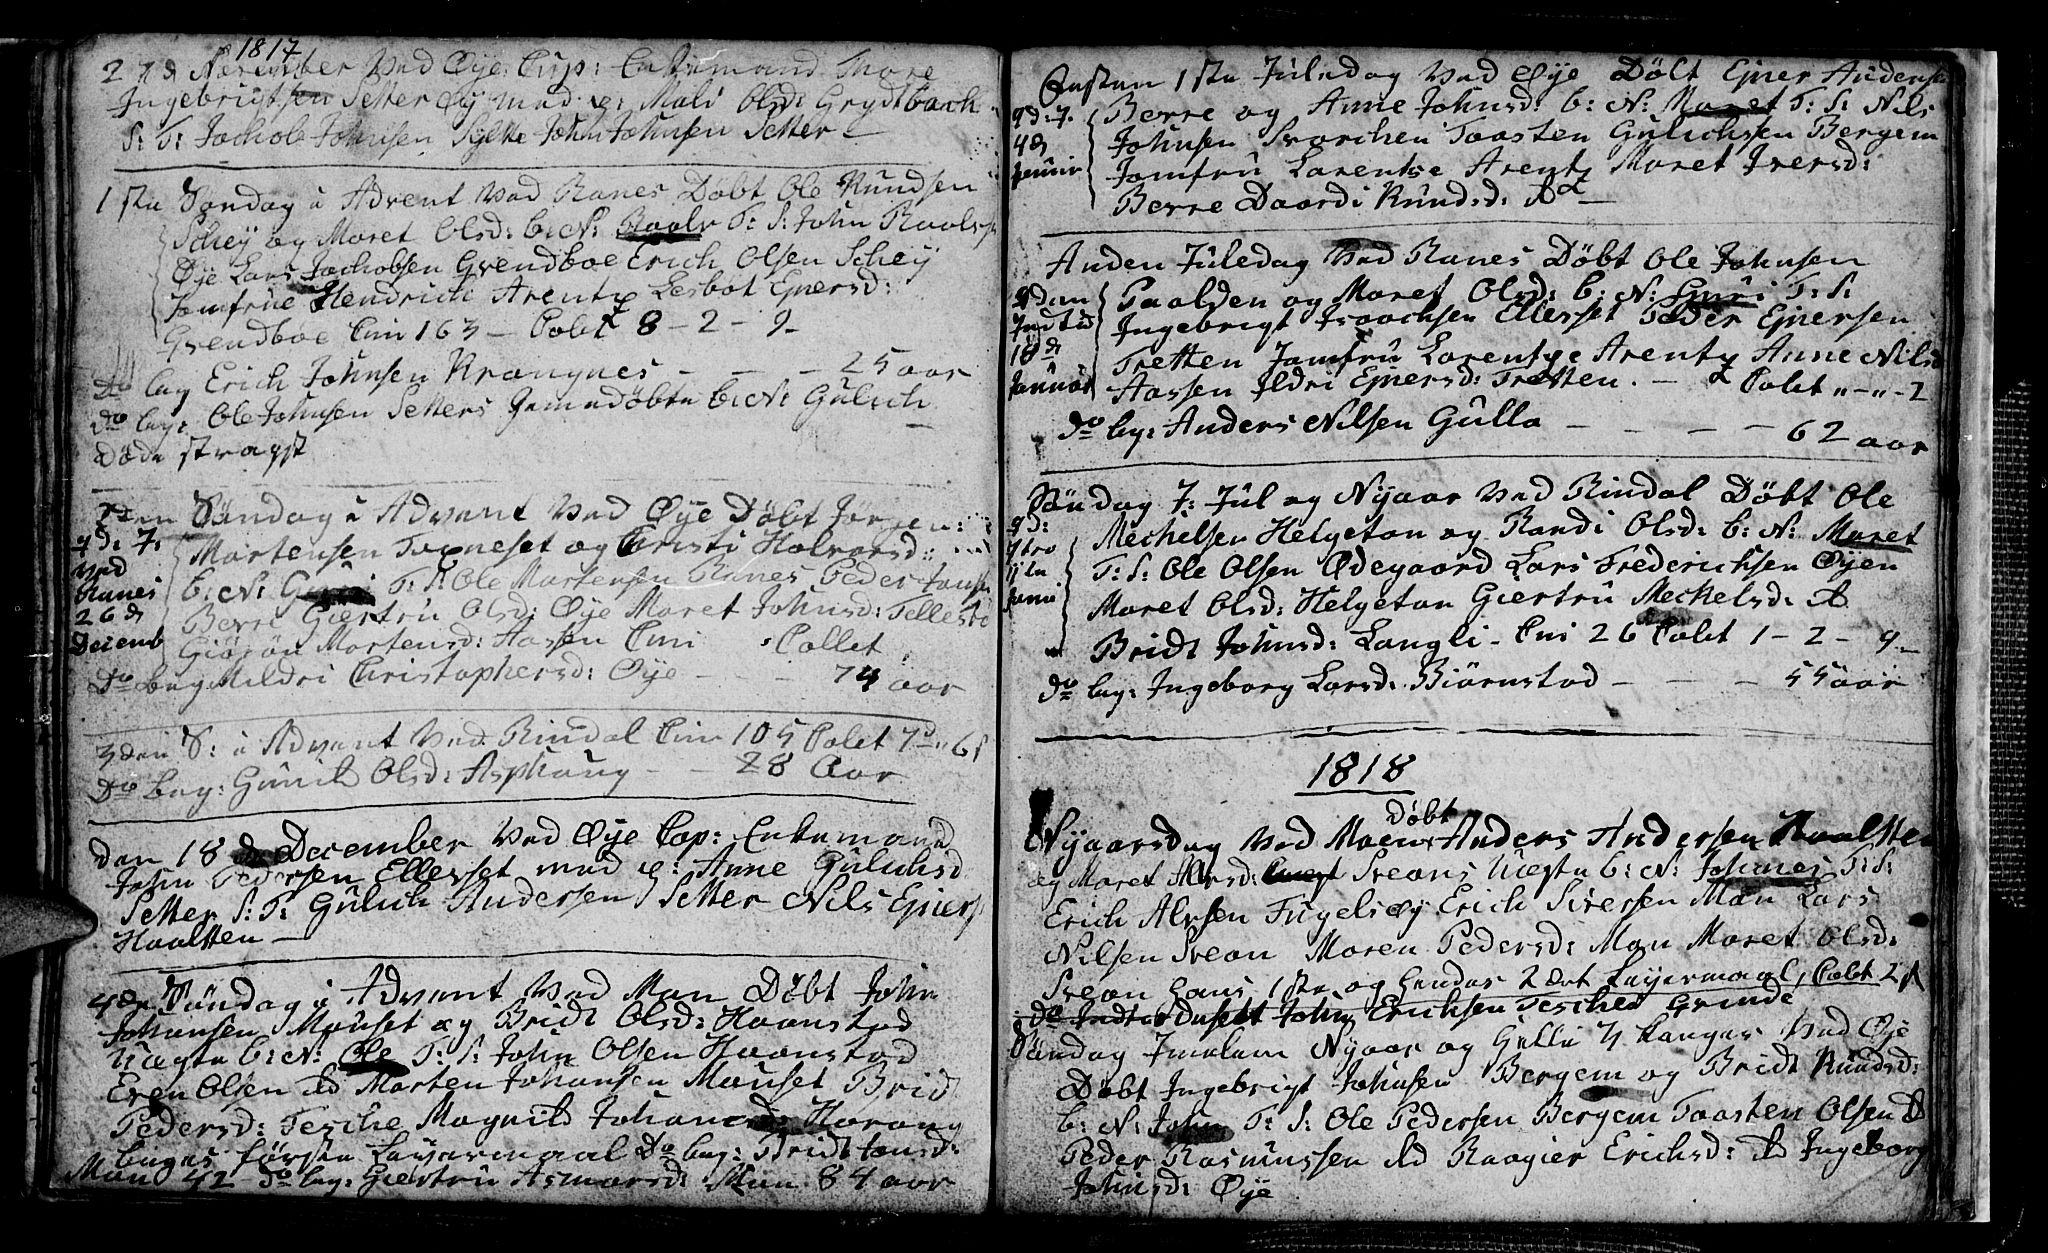 1817
27d November Ved Øye Cop: Enkemand Thore
Ingebrigtsen Setter Øy med p: Mali Olsd: Grydtbach
S: T: Jachob Johnsen Sylte John Johnsen Setter
1ste Søndag i Advent Ved Ranes Døbt Ole Knudsen
Schey og Maret Olsd: b: N: Raale T: S: John Raals
Øye Lars Jachobsen Grendboe Erich Olsen Schey
Jomfrue Hendrich Arentz Lesbet Ejnersd:
Grendboe Cmi 163 - Colet 8 - 2 - 9 -
Do beg Erich Johnsen Krangnes - - - 25 aar
do beg: Ole Johnsen Setters hjemedøbte b: N: Gulich
Døde stragst
2den Søndag i Advent Ved Øye Døbt Jørgen
gd: 7. Mortensen Tørneset og Cristi Halvorsd:
Ved
Ranes b: N: Guri T: S: Ole Mortensen Ranes Peder Jons
26d Berre Giertru Olsd: Øye Maret Johnsd: Telleste
Decemb Giørøn Mortensd: Aasen Cmi Collet
do beg Mildri Christophersd: Øye - - - 74 aar
3den S: i Advent Ved Rindal Cmi 105 Colet 7d 6s
do beg: Gunil Olsd: Asphaug - - 28 Aar
den 18d December Ved Øye Cop: Enkemand
John Pedersen Ellesset med p: Anne Gulichsd
Setter S: T: Gulich Andersen Setter Nils Ejners
Haaltten
4de Søndag i Advent Ved Moe Døbt John
Johansen Mauset og Bridt Olsd: Haanstad
Uægte b: N: Ole T: S: John Olsen Haanstad
Even Olsen ibd Morten Johansen Mauset Brid
Pedersd: Tesche Magnild Johansd: Harang
beges første Leyermaal Do beg: Bridt Jonsd:
Moe 42 do beg: Giertru Asmarsd: Moe 84 aar
1ste Juledag Ved Øye Døbt Ejner Andersen
gd: 7. Berre og Anne Johnsd: b: N: Maret T: S: Nils
4d Johnsen Svarchen Taasten Gulichsen Bergem
Januar Jomfru Larentse Arentz Maret Iversd:
Berre Daardi Knudsd: do
Anden Juledag Ved Ranes Døbt Ole Johnsen
Paalden og Maret Olsd: b: N: Guri T: S:
Indted Ingebrigt Isaachsen Ellesset Peder Ejnersen
18d Tretten Jomfru Larentze Arentz Anne Nilsd
Januar Aassen Ildri Ejnersd: Tretten. - Colet " - " - 2
do beg: Anders Nilsen Gulla - - - - 62 aar
Søndag 7: Jul og Nyaar Ved Rindal Døbt Ole
gd: Mechelsen Helgeton og Randi Olsd: b: N: Maret
T: S: Ole Olsen Ødegaard Lars Frederichsen Øyen
Maret Olsd: Helgeton Giertru Mechelsd: do
Bridt Johnsd: Langli - Cmi 26 Colet 1 - 2 - 9 -
do beg: Ingeborg Larsd: Biørnstad - - - 55 aar
1818
Døbt
Nyaarsdag Ved Moe Anders Andersen Haaltten
og Maret Alvsd: Sveans Uægte b: N: Johanes T: S:
Erich Alvsen Fugelsøy Erich Siversen Moe Lars
Nilsen Svean Maren Pedersd: Moe Maret Olsd:
Svean hans 1ste og hendes 2det Leyermaal, Colet 2s
do Indted Duseth John Erichsen Tesche Grinde
Søndag Imelem Nyaar og Hellig 3 Konger Ved Øye
Døbt Ingebrigt Johnsen Bergem og Bridt Knudsd:
b: N: John T: S: Ole Pedersen Bergem Taasten Olsen do
Peder Rasmussen ibd Raagier Erichsd: ibd Ingeborg
Johnsd: Øye